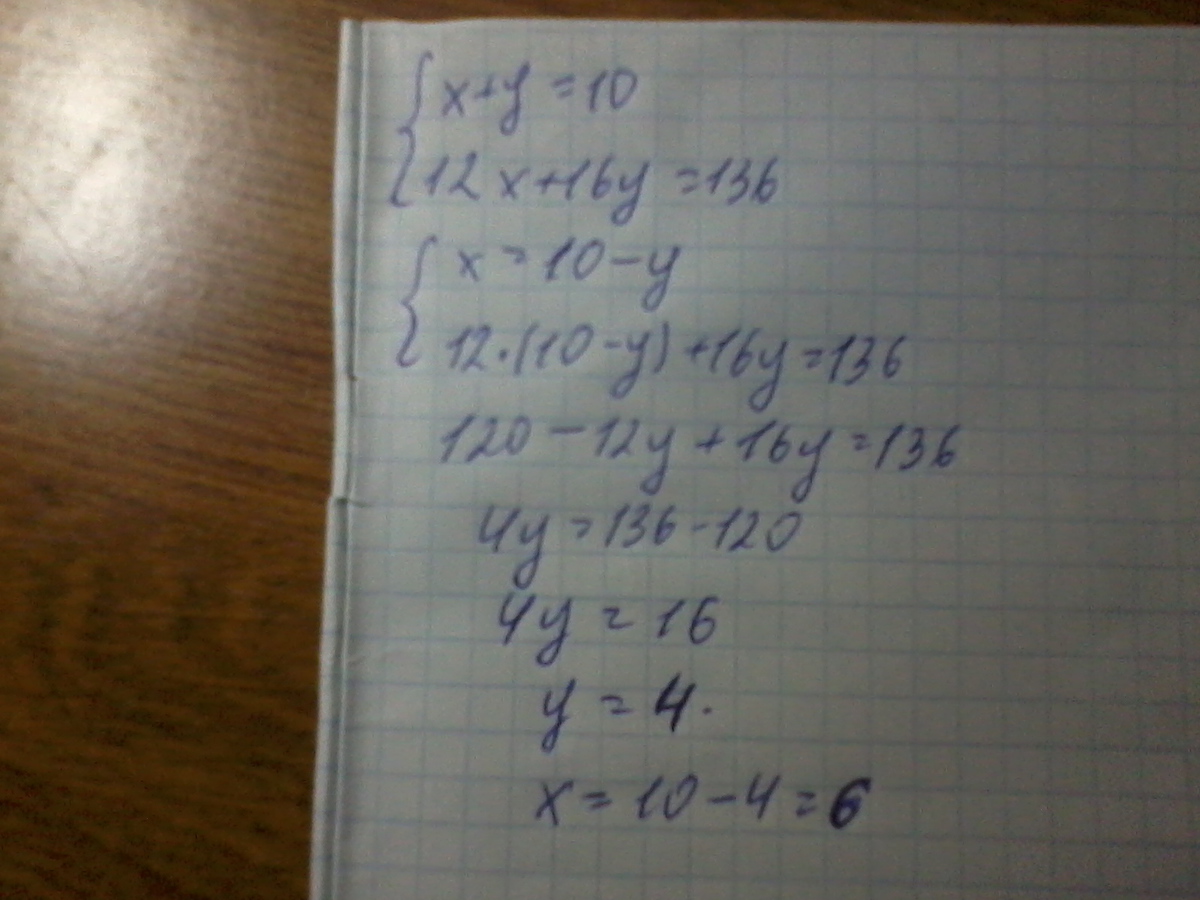 { x+y=10
12x+16y=136
{ x=10-y
12·(10-y)+16y=136
120-12y+16y=136
4y=136-120
4y=16
y=4.
x=10-4=6